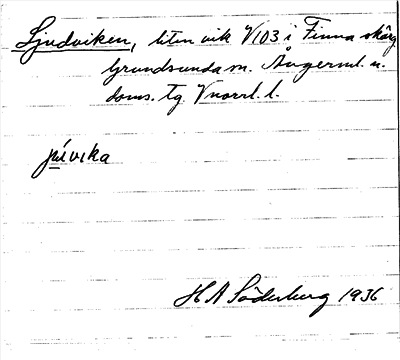 Ljudviken, liten vik V103 i Finna skärg
Grundsunda sn. Ångerml. n.
doms. tg Vnorrl. l.
júvika
H A Söderberg 1936